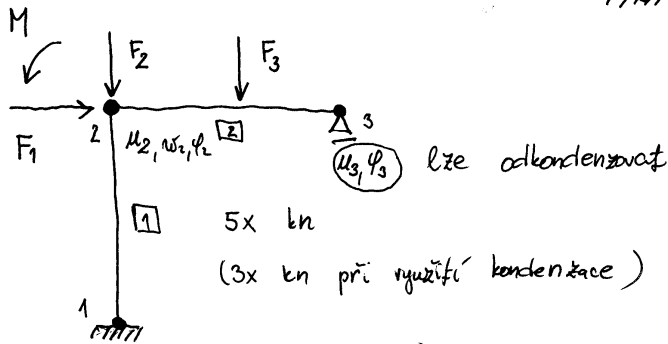 M
F₂
F₃
F₁
2
u₂, w₂, φ₂
2
3
u₃, φ₃ lze odkondenzovat
1
5x kn
(3x kn při využití kondenzace)
1